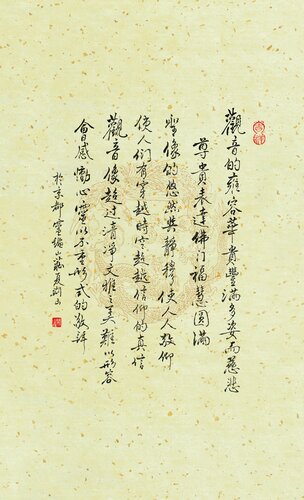 觀音的雍容華貴豐滿多姿而慈悲
尊貴表達佛門福慧圓滿
聖像的悠然與靜穆使人人敬仰
使人们有穿越時空超越信仰的真情
觀音像超过清净文雅之美難以形容
會感動心靈以不求形式的教拜
於京都